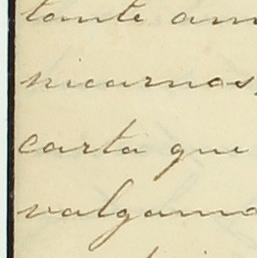 tante am
nicarnos,
carta que
valgamo